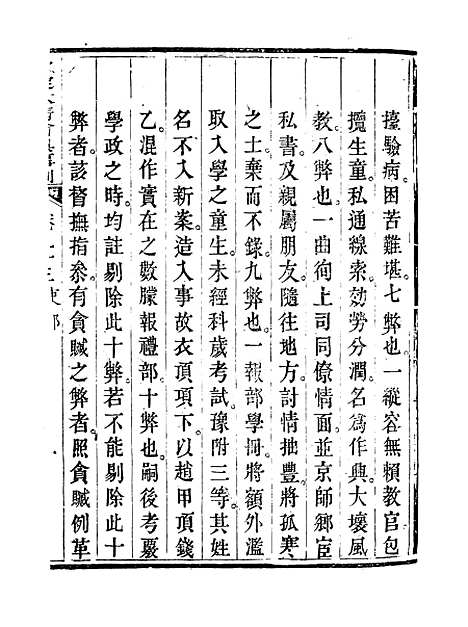 擡驗病。困苦難堪。七弊也。一縱容無賴教官包
攬生童。私通線索。効勞分潤。名爲作興。大壞風
教。八弊也。一曲徇上司同僚情面。並京師鄉宦
私書。及親屬朋友。隨往地方。討情抽豐。將孤寒
之士。棄而不錄。九弊也。一報部學冊。將額外濫
取入學之童生。未經科歲考試。豫附三等。其姓
名不入新案。造入事故衣頂項下。以趙甲頂錢
乙。混作實在之數。朦報禮部。十弊也。嗣後考覈
學政之時。均註剔除此十弊。若不能剔除此十
弊者。該督撫指參。有貪贓之弊者。照貪贓例革
吏部